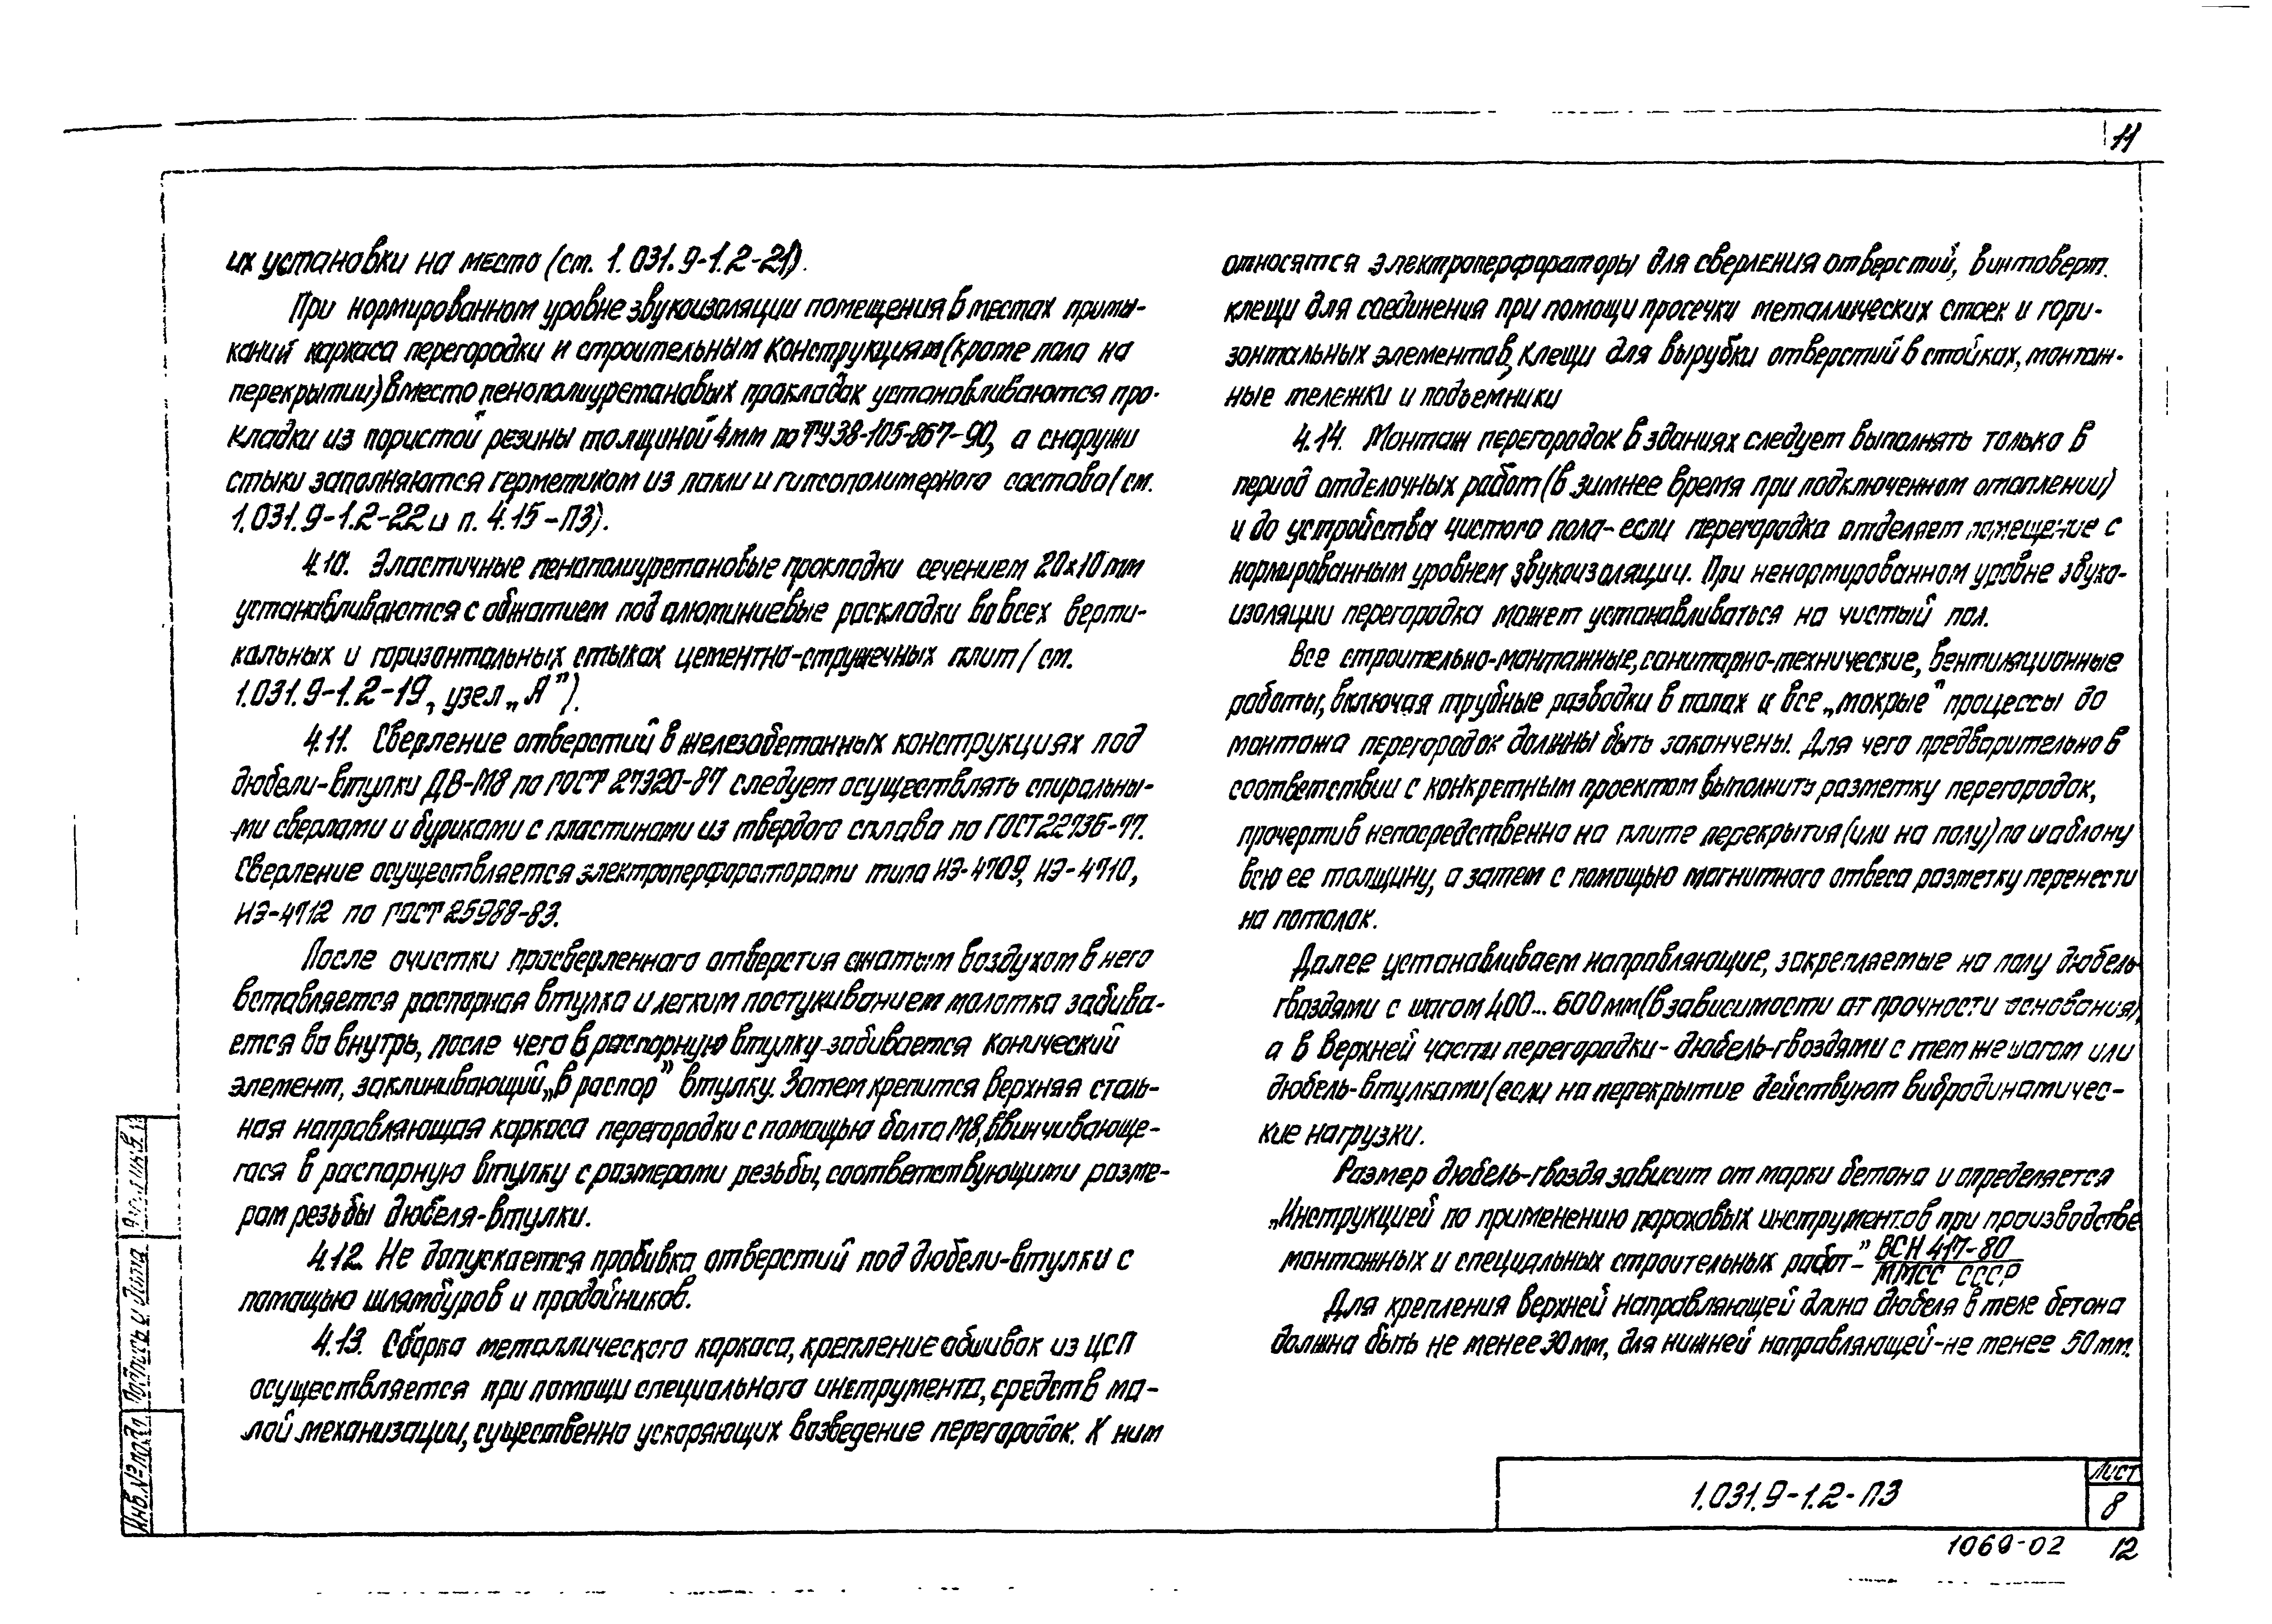 11
их установки на место (см. 1.031.9-1.2-21).
При нормированном уровне звукоизоляции помещения в местах примы-
каний каркаса перегородки к строительным конструкциям (кроме пола на
перекрытии) вместо пенополиуретановых прокладок устанавливаются про-
кладки из пористой резины толщиной 4мм по ТУ38-105-867-90, а снаружи
стыки заполняются герметиком из пакли и гипсополимерного состава (см.
1.031.9-1.2-22 и п. 4.15-ПЗ).
4.10. Эластичные пенополиуретановые прокладки сечением 20х10мм
устанавливаются с обжатием под алюминиевые раскладки во всех верти-
кальных и горизонтальных стыках цементно-стружечных плит (см.
1.031.9-1.2-19, узел „А").
4.11. Сверление отверстий в железобетонных конструкциях под
дюбели-втулки ДВ-М8 по ГОСТ 27320-87 следует осуществлять спиральны-
ми сверлами и буриками с пластинами из твердого сплава по ГОСТ 22736-77.
Сверление осуществляется электроперфораторами типа ИЭ-4709, ИЭ-4710,
ИЭ-4712 по ГОСТ 25988-83.
После очистки просверленного отверстия сжатым воздухом в него
вставляется распорная втулка и легким постукиванием молотка забива-
ется во внутрь, после чего в распорную втулку забивается конический
элемент, заклинивающий „в распор" втулку. Затем крепится верхняя сталь-
ная направляющая каркаса перегородки с помощью болта М8, ввинчивающе-
гося в распорную втулку с размерами резьбы, соответствующими разме-
рам резьбы дюбеля-втулки.
4.12. Не допускается пробивка отверстий под дюбели-втулки с
помощью шлямбуров и пробойников.
4.13. Сборка металлического каркаса, крепление обшивок из ЦСП
осуществляется при помощи специального инструмента, средств ма-
лой механизации, существенно ускоряющих возведение перегородок. К ним
относятся электроперфораторы для сверления отверстий, винтоверт.
клещи для соединения при помощи просечки металлических стоек и гори-
зонтальных элементов, клещи для вырубки отверстий в стойках, монтаж-
ные тележки и подъемники
4.14. Монтаж перегородок в зданиях следует выполнять только в
период отделочных работ (в зимнее время при подключенном отоплении)
и до устройства чистого пола-если перегородка отделяет помещение с
нормированным уровнем звукоизоляции. При ненормированном уровне звуко-
изоляции перегородка может устанавливаться на чистый пол.
Все строительно-монтажные, санитарно-технические, вентиляционные
работы, включая трубные разводки в полах и все „мокрые" процессы до
монтажа перегородок должны быть закончены. Для чего предварительно в
соответствии с конкретным проектом выполнить разметку перегородок,
прочертив непосредственно на плите перекрытия (или на полу) по шаблону
всю ее толщину, а затем с помощью магнитного отвеса разметку перенести
на потолок.
Далее устанавливаем направляющие, закрепляемые на полу дюбель-
гвоздями с шагом 400...600мм (в зависимости от прочности основания),
а в верхней части перегородки - дюбель-гвоздями с тем же шагом или
дюбель-втулками (если на перекрытие действуют вибродинамичес-
кие нагрузки.
Размер дюбель-гвоздя зависит от марки бетона и определяется
„Инструкцией по применению пороховых инструментов при производстве
монтажных и специальных строительных работ-" ВСН 417-80
ММСС СССР
Для крепления верхней направляющей длина дюбеля в теле бетона
должна быть не менее 30мм, для нижней направляющей-не менее 50мм.
Инв.№ подл. Подпись и дата
1.031.9-1.2-ПЗ
Лист
8
1069-02 12